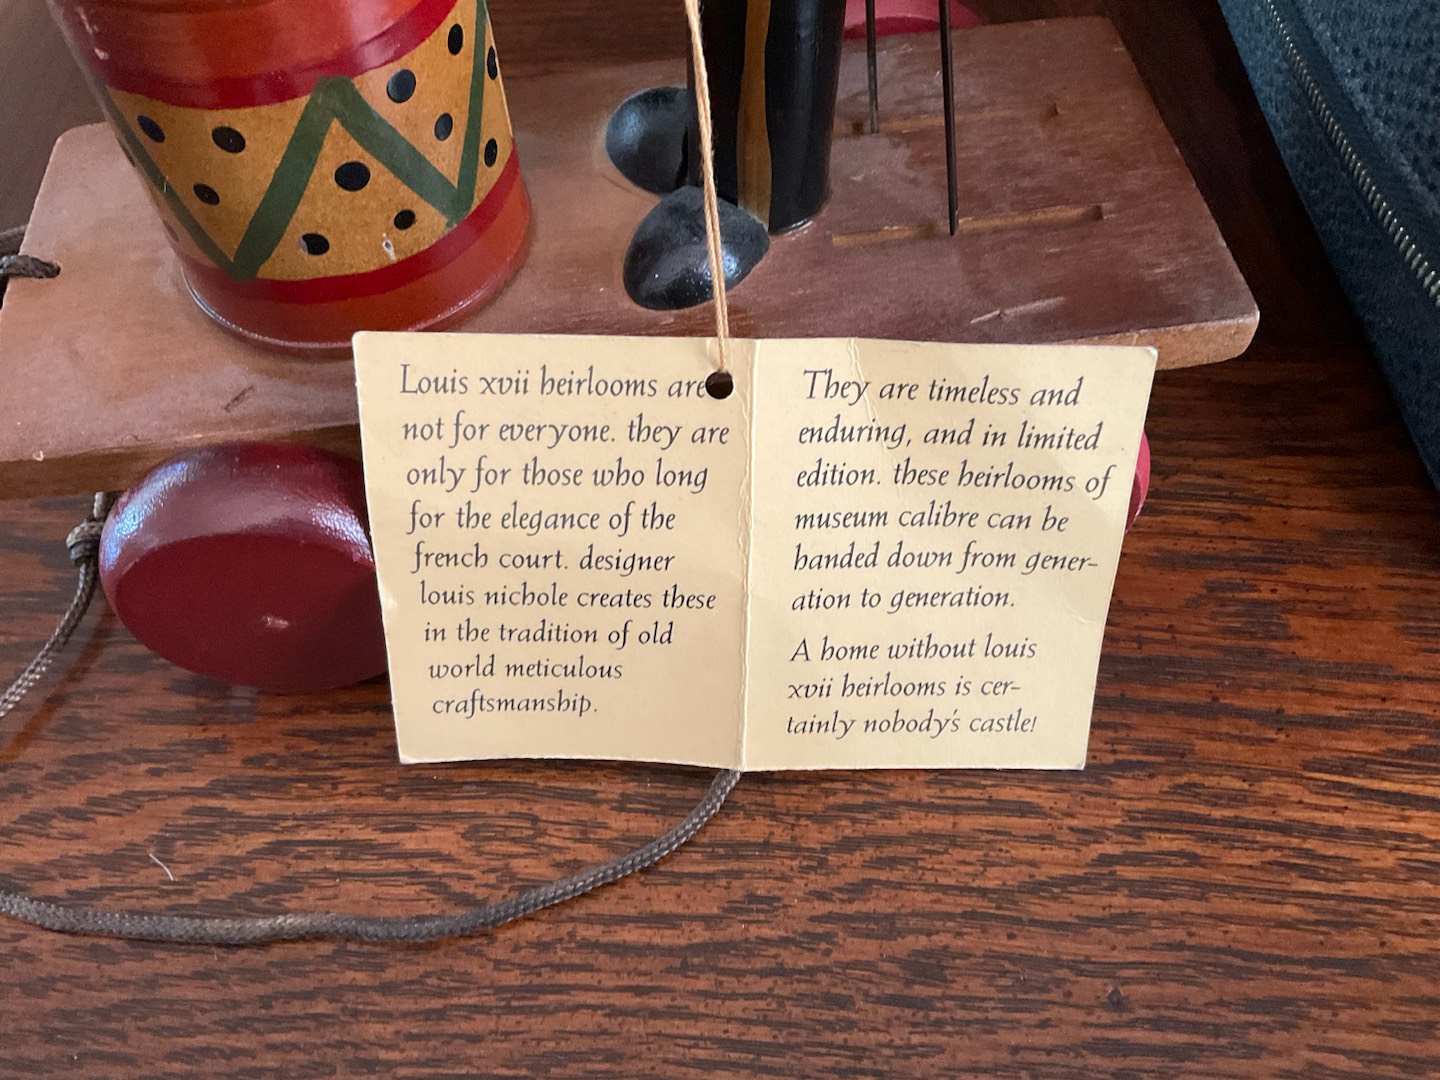 Louis xvii heirlooms are
not for everyone. they are
only for those who long
for the elegance of the
french court. designer
louis nichole creates these
in the tradition of old
world meticulous
craftsmanship.
They are timeless and
enduring, and in limited
edition. these heirlooms of
museum calibre can be
handed down from gener-
ation to generation.
A home without louis
xvii heirlooms is cer-
tainly nobody's castle!